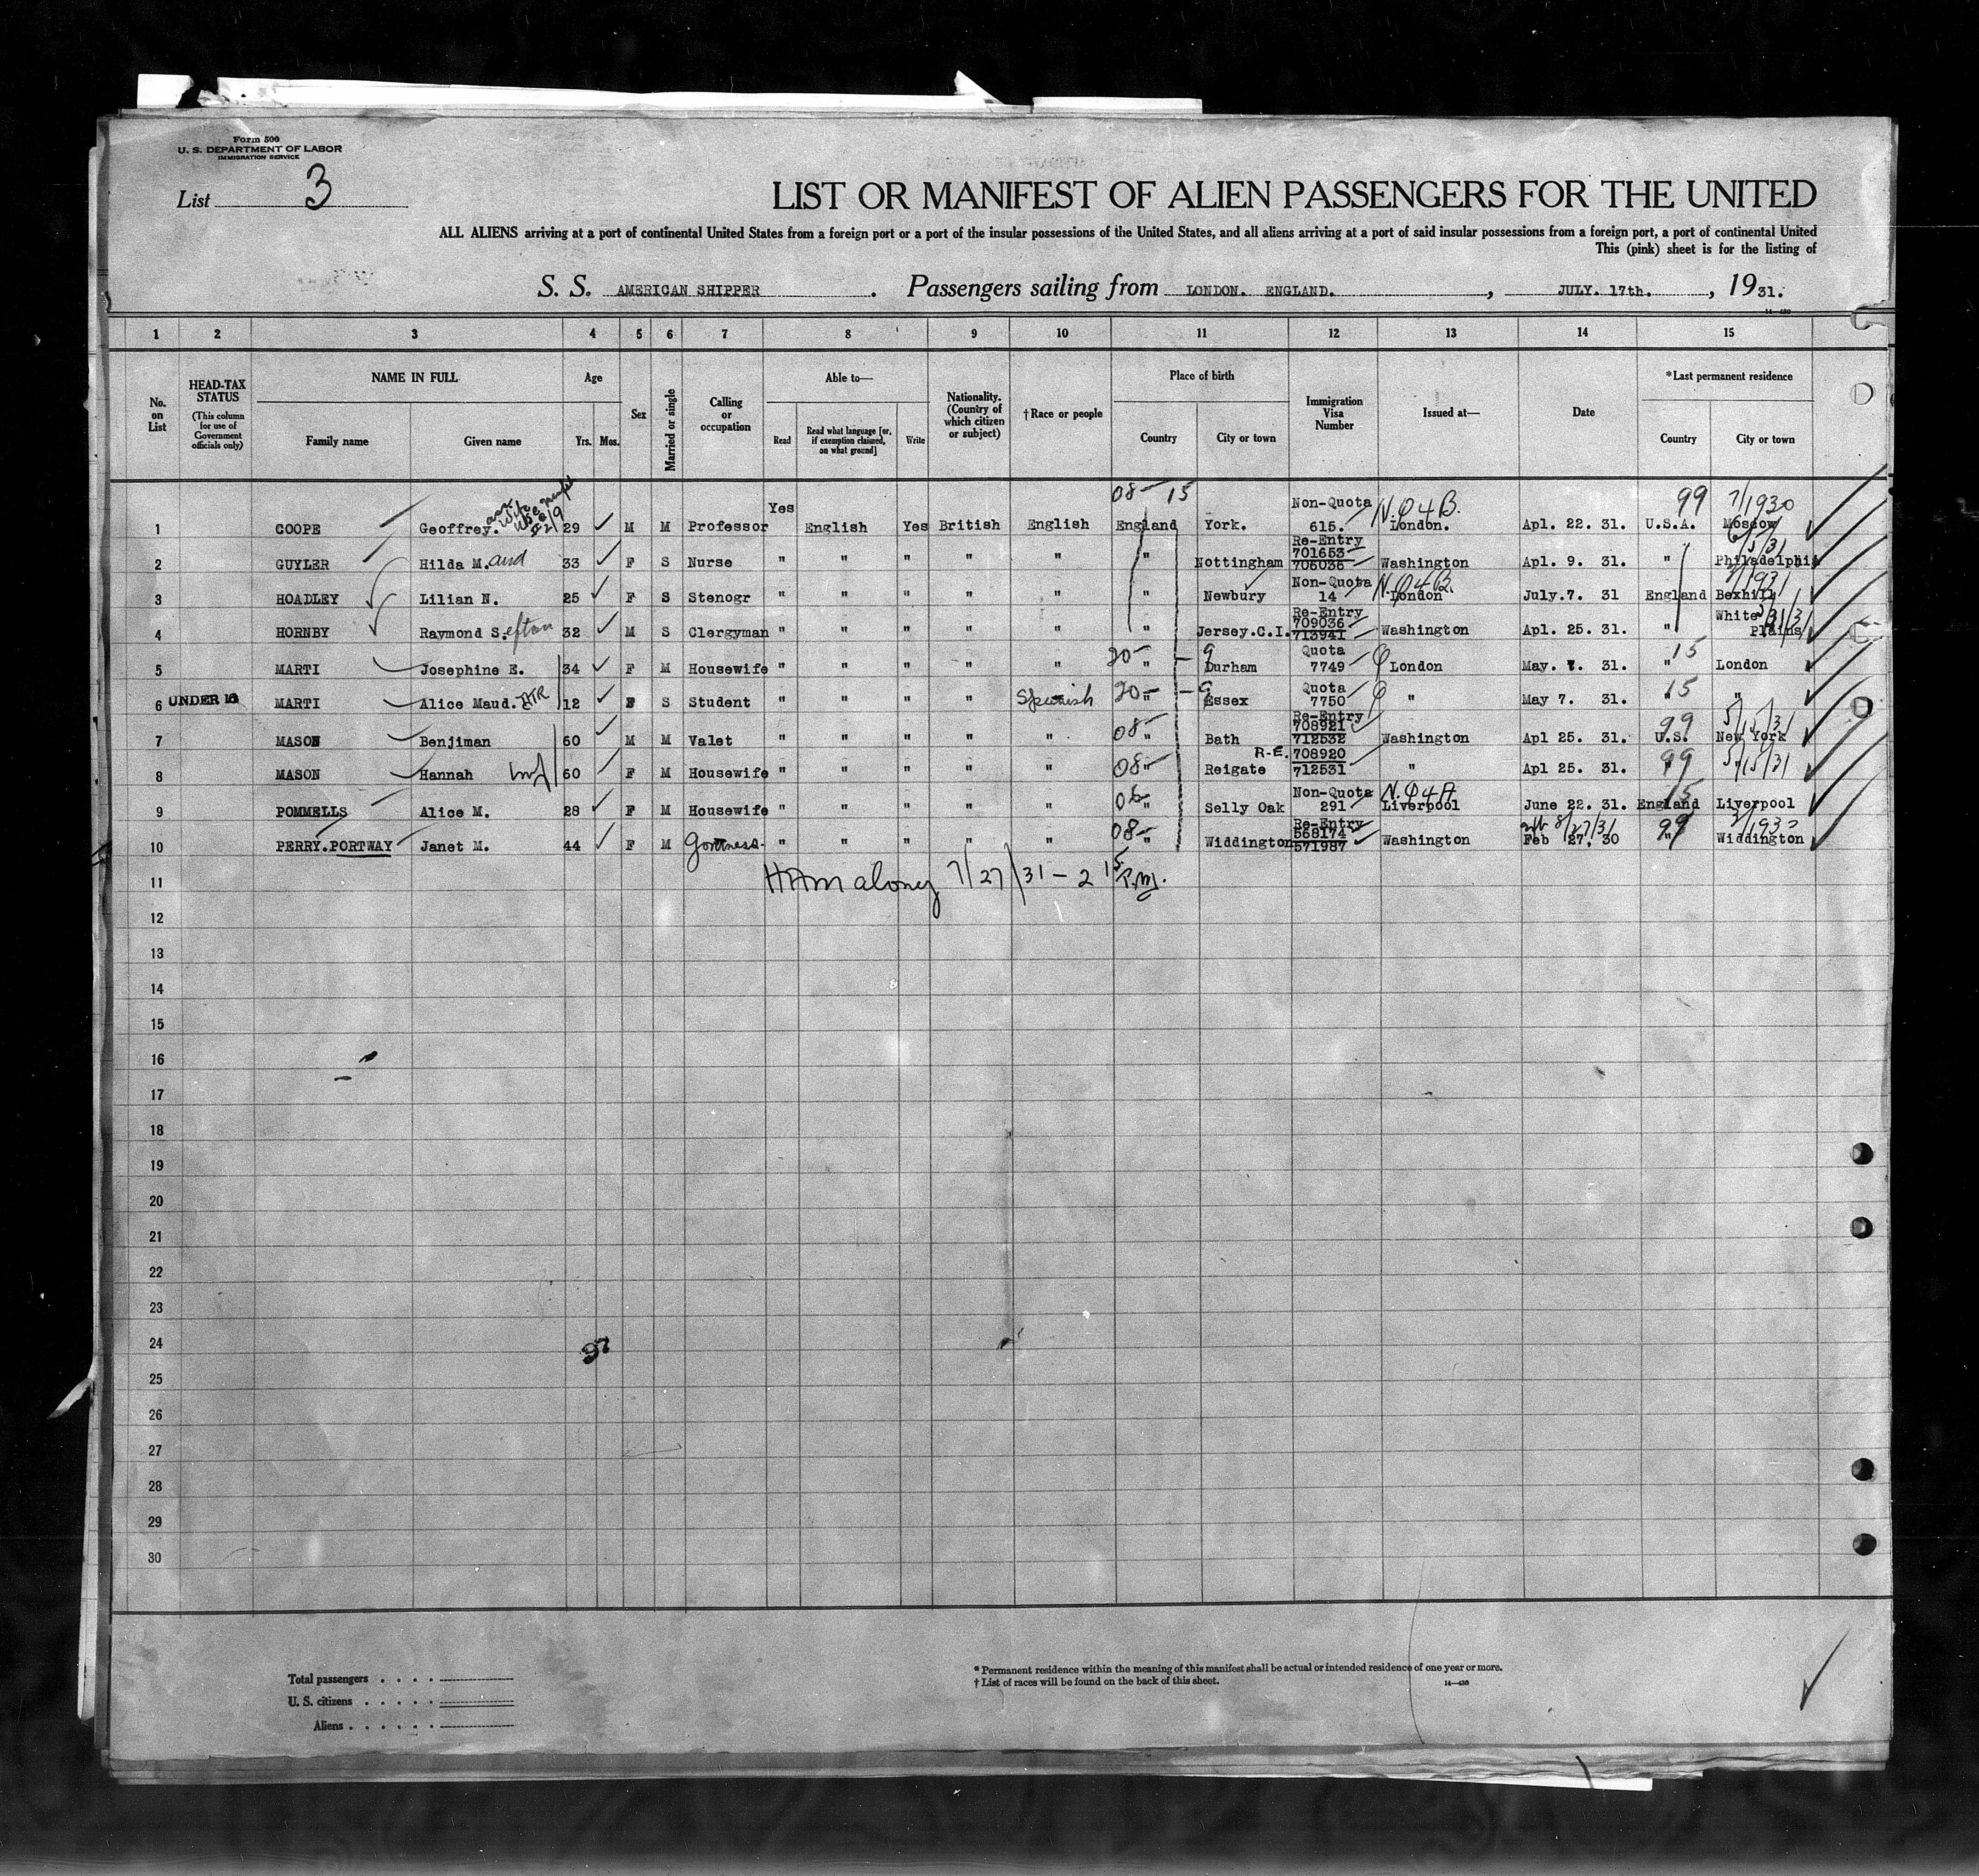 Form 500
U. S. DEPARTMENT OF LABOR
IMMIGRATION SERVICE
List 3
LIST OR MANIFEST OF ALIEN PASSENGERS FOR THE UNITED
ALL ALIENS arriving at a port of continental United States from a foreign port or a port of the insular possessions of the United States, and all aliens arriving at a port of said insular possessions from a foreign port, a port of continental United
This (pink) sheet is for the listing of
S. S. AMERICAN SHIPPER . Passengers sailing from LONDON. ENGLAND. , JULY. 17th. , 1931.
14—430
1 2 3 4 5 6 7 8 9 10 11 12 13 14 15
No. on List
HEAD-TAX STATUS (This column for use of Government officials only)
NAME IN FULL
Family name Given name
Age
Yrs. Mos.
Sex
Married or single
Calling or occupation
Able to—
Read
Read what language [or, if exemption claimed, on what ground]
Write
Nationality. (Country of which citizen or subject)
†Race or people
Place of birth
Country City or town
Immigration Visa Number
Issued at—
Date
*Last permanent residence
Country City or town
08 - 15 Non-Quota N.Q4B. 99 7/1930
1 COOPE Geoffrey. 29 M M Professor Yes English Yes British English England York. 615. London. Apl. 22. 31. U.S.A. Moscow
Re-Entry 701653 6/5/31
2 GUYLER Hilda M. and 33 F S Nurse " " " " " " Nottingham 706036 Washington Apl. 9. 31. " Philadelphia
Non-Quota N.Q4B. 7/1931
3 HOADLEY Lilian N. 25 F S Stenogr " " " " " " Newbury 14 London July.7. 31 England Bexhill
Re-Entry 709036 White
4 HORNBY Raymond S.efton 32 M S Clergyman " " " " " " Jersey.C.I. 713941 Washington Apl. 25. 31. " Plains
20- 9 Quota Q 15
5 MARTI Josephine E. 34 F M Housewife " " " " " " Durham 7749 London May. 7. 31. " London
20- 9 Quota Q 15
6 UNDER 16 MARTI Alice Maud. 12 F S Student " " " " Spanish " Essex 7750 " May 7. 31. " "
08- Re-Entry 708921 99 5/15/31
7 MASON Benjiman 60 M M Valet " " " " " " Bath 712532 Washington Apl 25. 31. U.S. New York
08- R-E. 708920 99 5/15/31
8 MASON Hannah 60 F M Housewife " " " " " " Reigate 712531 " Apl 25. 31. " "
Non-Quota N.Q4A 15
9 POMMELLS Alice M. 28 F M Housewife " " " " " " Selly Oak 291 Liverpool June 22. 31. England Liverpool
08- Re-Entry 568174 8/27/31 99
10 PERRY.PORTWAY Janet M. 44 F M " " " " " " Widdington 571987 Washington Feb 27. 30 " Widdington
11 7/27/31 - 2 15 P.M.
12
13
14
15
16
17
18
19
20
21
22
23
24 97
25
26
27
28
29
30
Total passengers . . . .
U. S. citizens . . . . .
Aliens . . . . . .
* Permanent residence within the meaning of this manifest shall be actual or intended residence of one year or more.
† List of races will be found on the back of this sheet.
14—430